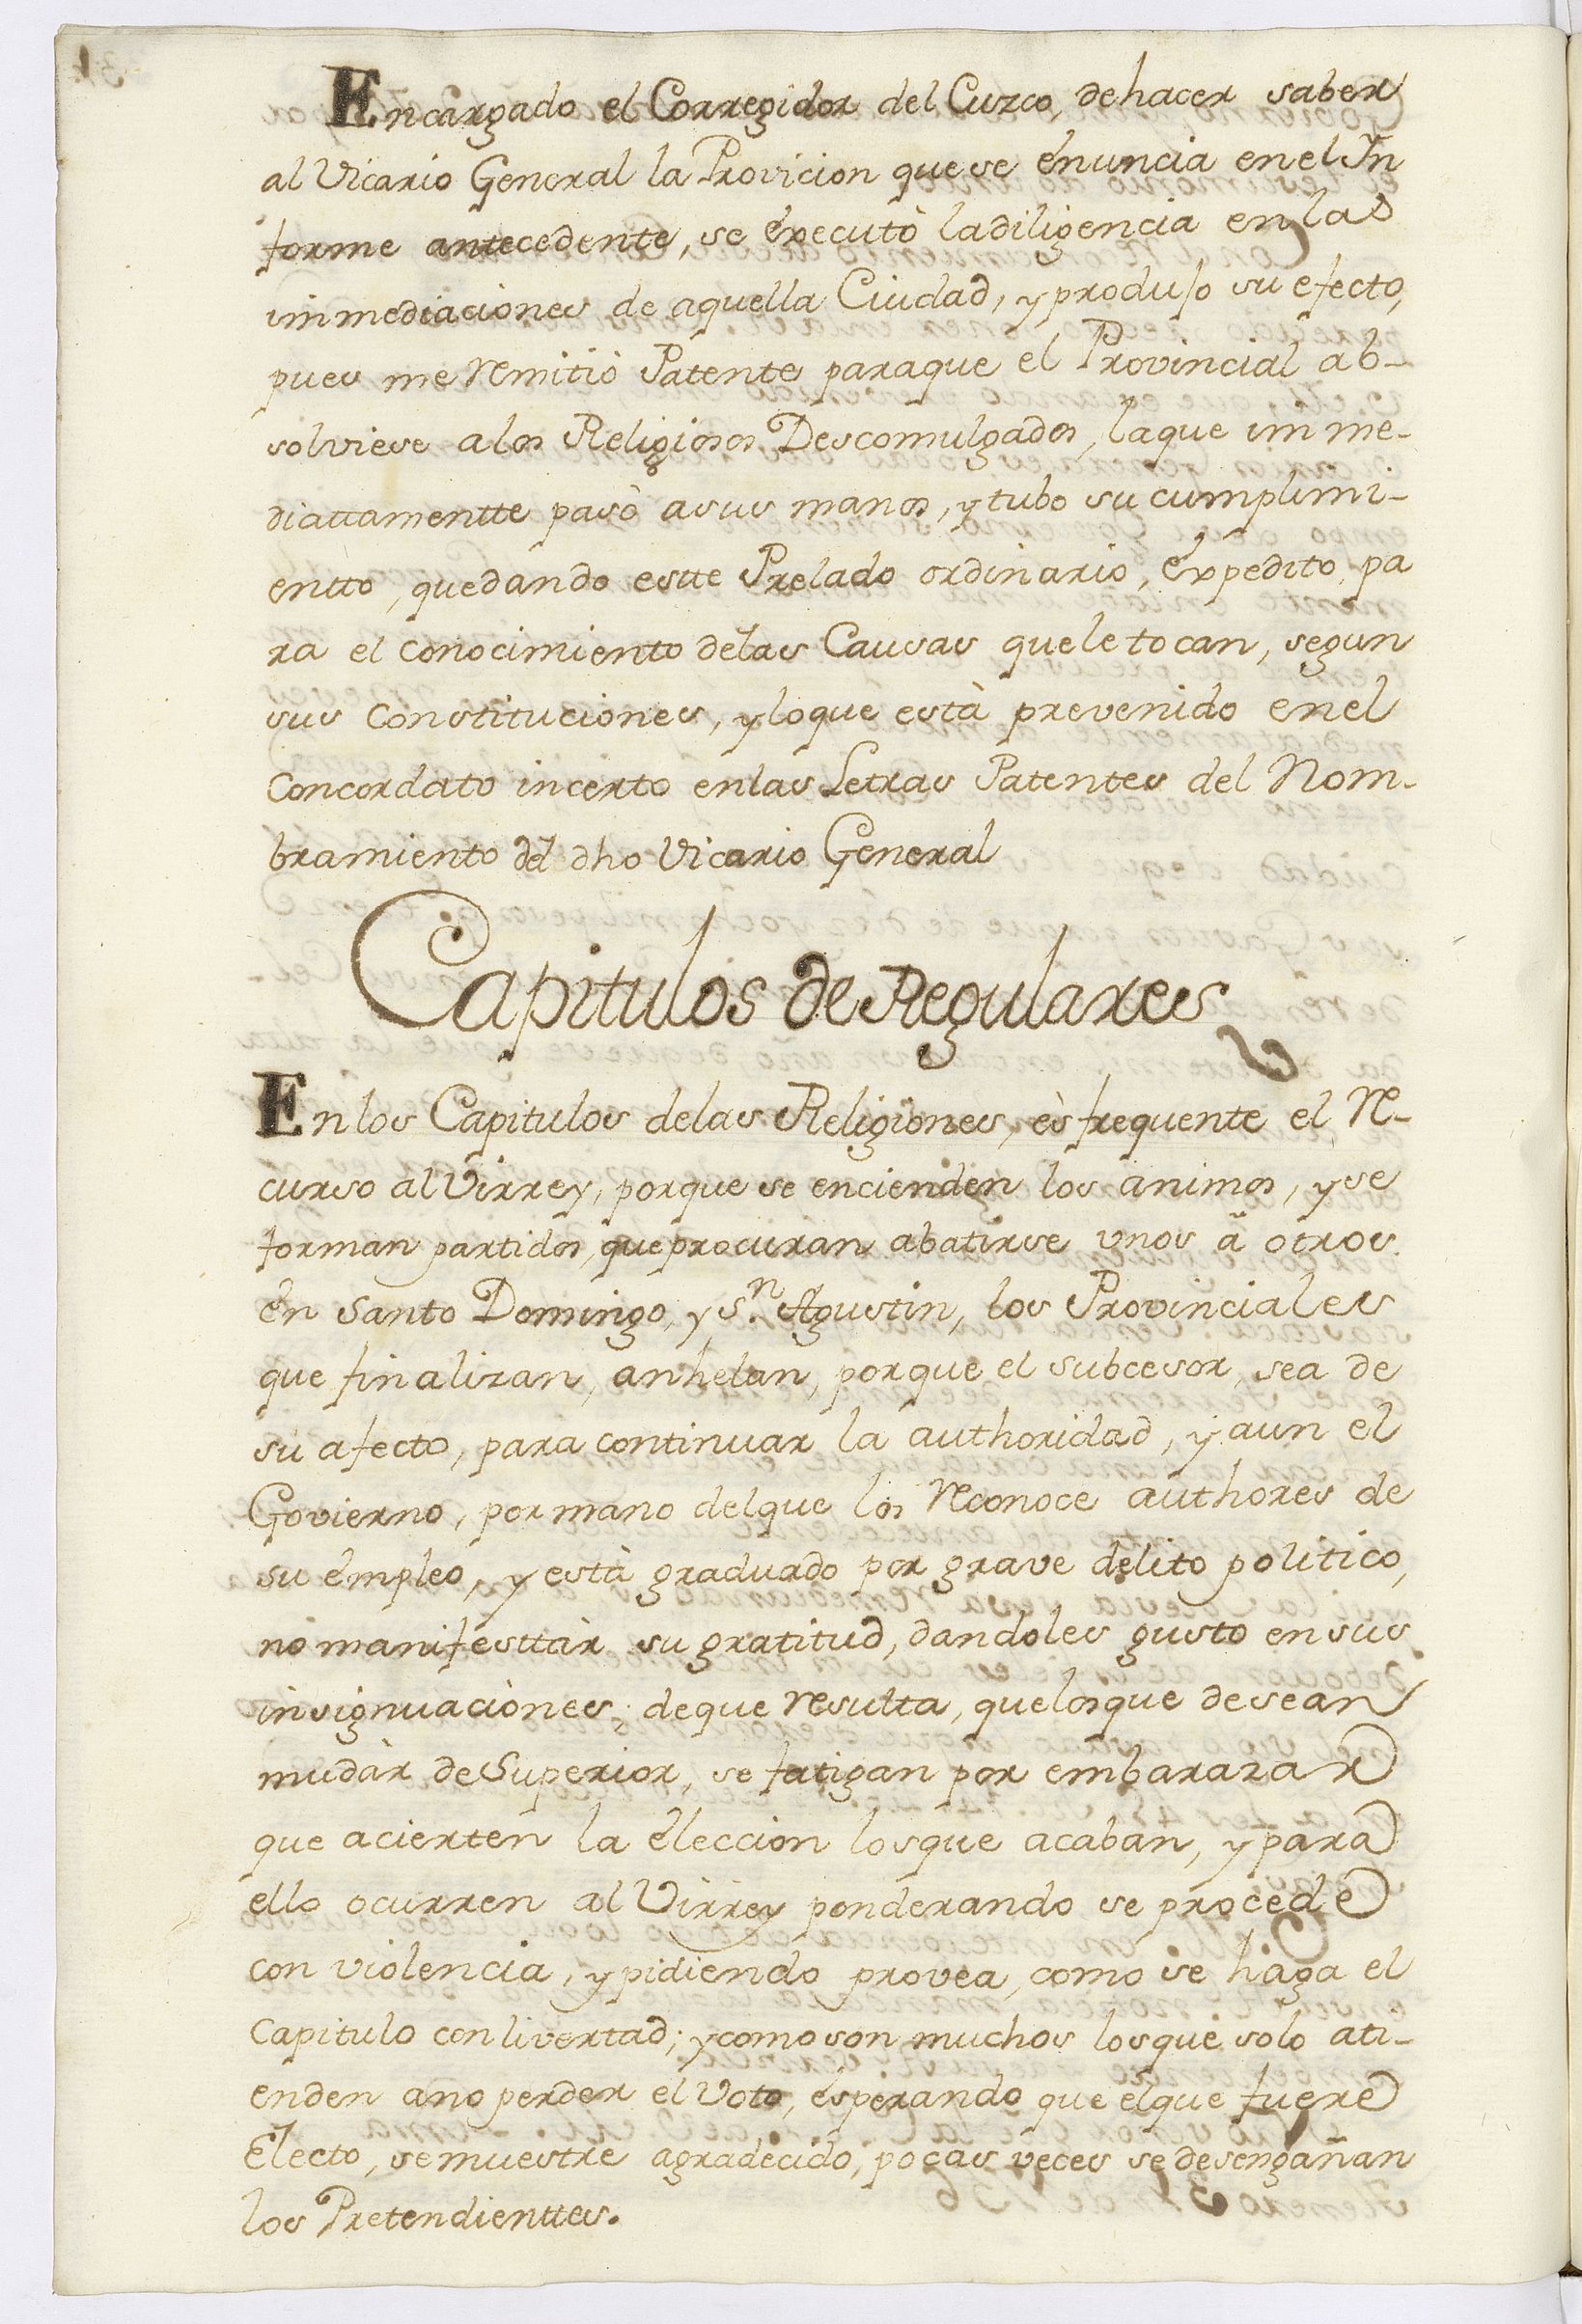 Encargado el Corregidor del Cuzco, dehacer saber
al Vicario General la Provicion quese énuncia enel In
forme antecedente, se éxecutò ladiligencia en las
immediaciones de aquella Ciudad, y produjo su efecto,
pues me remitiò Patente paraque el Provincial ab-
solviese alos Religiosos Descomulgados, laque imme-
diattamentte pasò asus manos, y tubo su cumplimi-
entto, quedando estte Prelado ordinario, éxpedito pa
ra el conocimiento delas Causas quele tocan, segun
sus Constituciones, yloque està prevenido enel
Concordato incerto enlas Letras Patentes del Nom-
bramiento del dho Vicario General
Capitulos de Regulares
Enlos Capitulos delas Religiones, ès frequente el re-
curso al Virrey, porque se encienden los animos, y se
forman partidos, que procuran abatirse unos â otros
en Santo Domingo, y Sn. Agustin, los Provinciales
que finalizan, anhelan, porque el subcesor, sea de
su afecto, para continuar la authoridad, y aun el
Govierno, por mano delque los reconoce authores de
su émpleo, y està graduado por grave delito politico,
no manifesttàr su gratitud, dandoles gusto en sus
insignuaciones; deque resulta, quelosque desean
mudàr de Superior, se fatigan por embarazar
que acierten la élleccion losque acaban, y para
ello ocurren al Virrey ponderando se procede
con violencia, y pidiendo provea, como se haga el
Capitulo con livertad; y como son muchos losque solo ati-
enden ano perder el Voto, ésperando que élque fuere
Electo, se muestre agradecido, pocas veces se desengañan
los Pretendienttes.